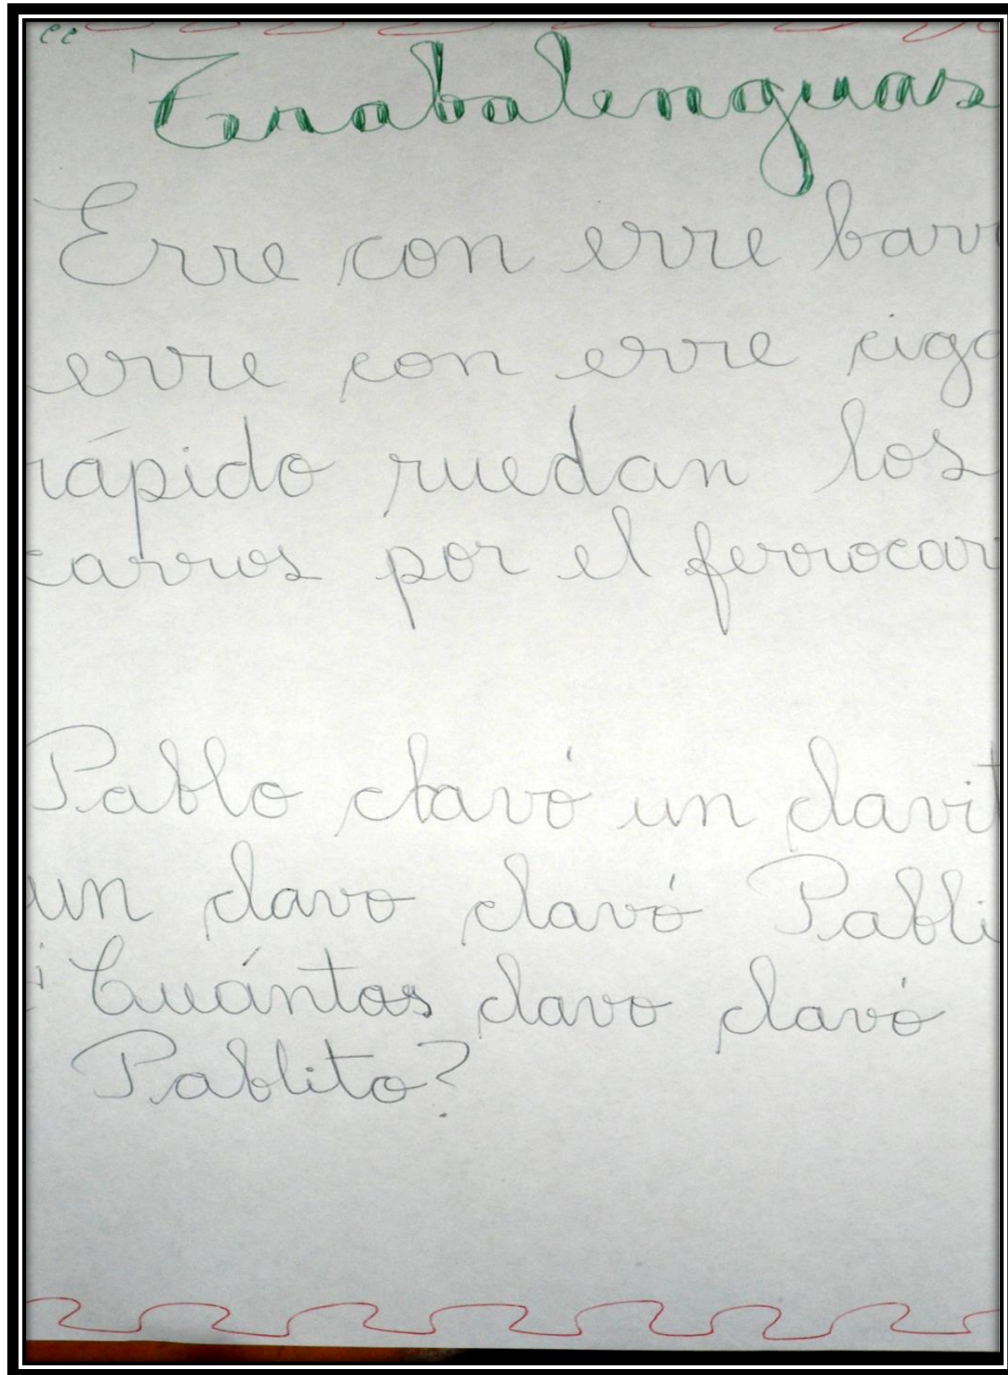 “Trabalenguas
Erre con erre barr
erre con erre ciga
rápido ruedan los
carros por el ferrocar
Pablo clavó un clavit
un clavo clavó Pabli
¿Cuántos clavo clavó
Pablito?